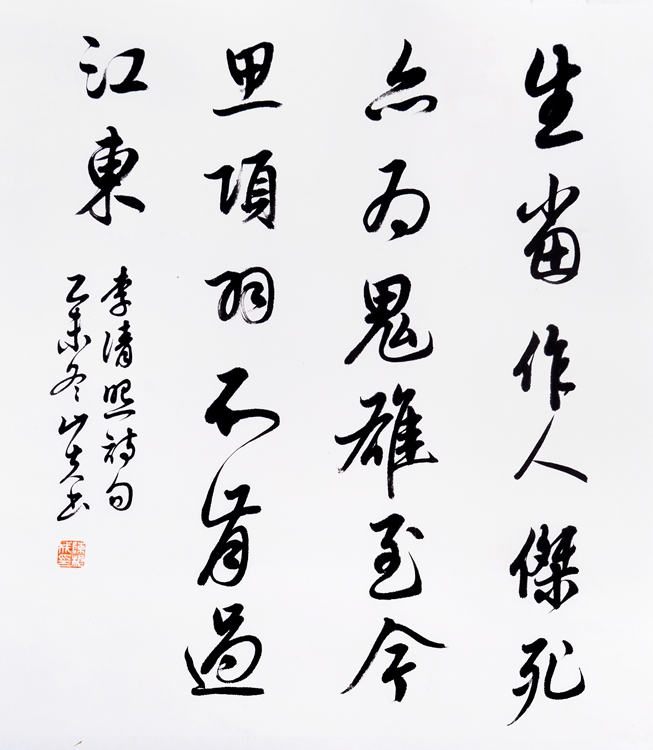 生當作人傑死
亦為鬼雄至今
思項羽不肯過
江東
李清照詩句
乙未冬山書